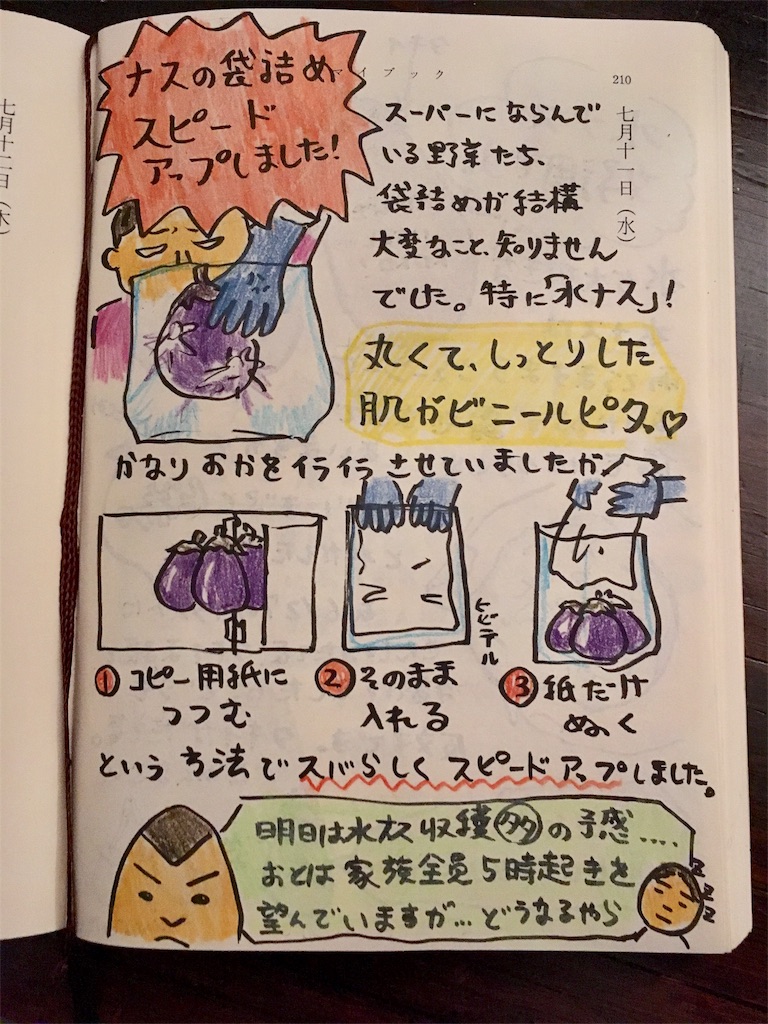 210
七月十一日（水）
七月十二日（木）
ナスの袋詰め
スピード
アップしました!
イブック
スーパーにならんで
いる野菜たち、
袋詰めが結構
大変なこと、知りません
でした。特に「水ナス」!
丸くて、しっとりした
肌がビニールピタ、♡
かなりおかをイライラさせていましたが
①コピー用紙に
つつむ
②そのまま
入れる
ビニール
③紙だけ
ぬく
という方法でスバらしくスピードアップしました。
明日は水ナス収穫多の予感....
おとは家族全員5時起きを
望んでいますが…どうなるやら
zzz